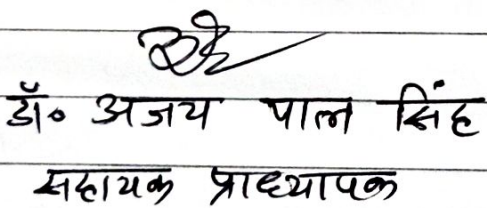 डॉ० अजय पाल सिंह
सहायक प्राध्यापक